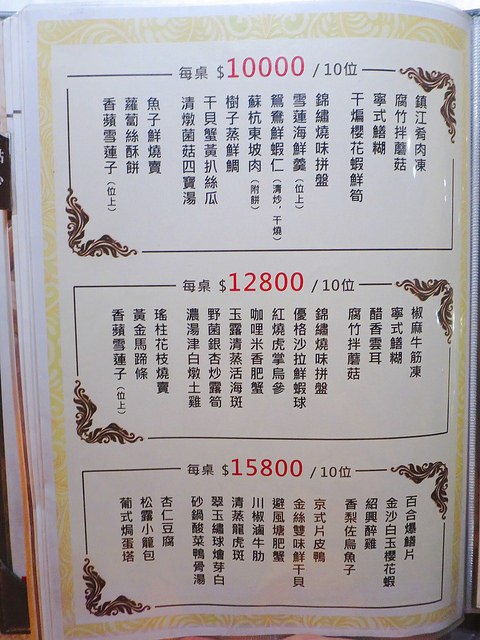 每桌 $10000 /10位
鎮江肴肉凍
腐竹拌蘑菇
寧式鱔糊
干煸櫻花蝦鮮筍
錦繡燒味拼盤
雪蓮海鮮羹(位上)
鴛鴦鮮蝦仁(清炒,干燒)
蘇杭東坡肉(附餅)
樹子蒸鮮鯛
干貝蟹黃扒絲瓜
清燉菌菇四寶湯
魚子鮮燒賣
蘿蔔絲酥餅
香蘋雪蓮子(位上)
每桌 $12800 /10位
椒麻牛筋凍
寧式鱔糊
醋香雲耳
腐竹拌蘑菇
錦繡燒味拼盤
優格沙拉鮮蝦球
紅燒虎掌烏參
咖哩米香肥蟹
玉露清蒸活海斑
野菌銀杏炒露筍
濃湯津白燉土雞
瑤柱花枝燒賣
黃金馬蹄條
香蘋雪蓮子(位上)
每桌 $15800 /10位
百合爆鱔片
金沙白玉櫻花蝦
紹興醉雞
香梨佐烏魚子
京式片皮鴨
金絲雙味鮮干貝
避風塘肥蟹
川椒滷牛肋
清蒸龍虎斑
翠玉繡球燴芽白
砂鍋酸菜鴨骨湯
杏仁豆腐
松露小籠包
葡式焗蛋塔